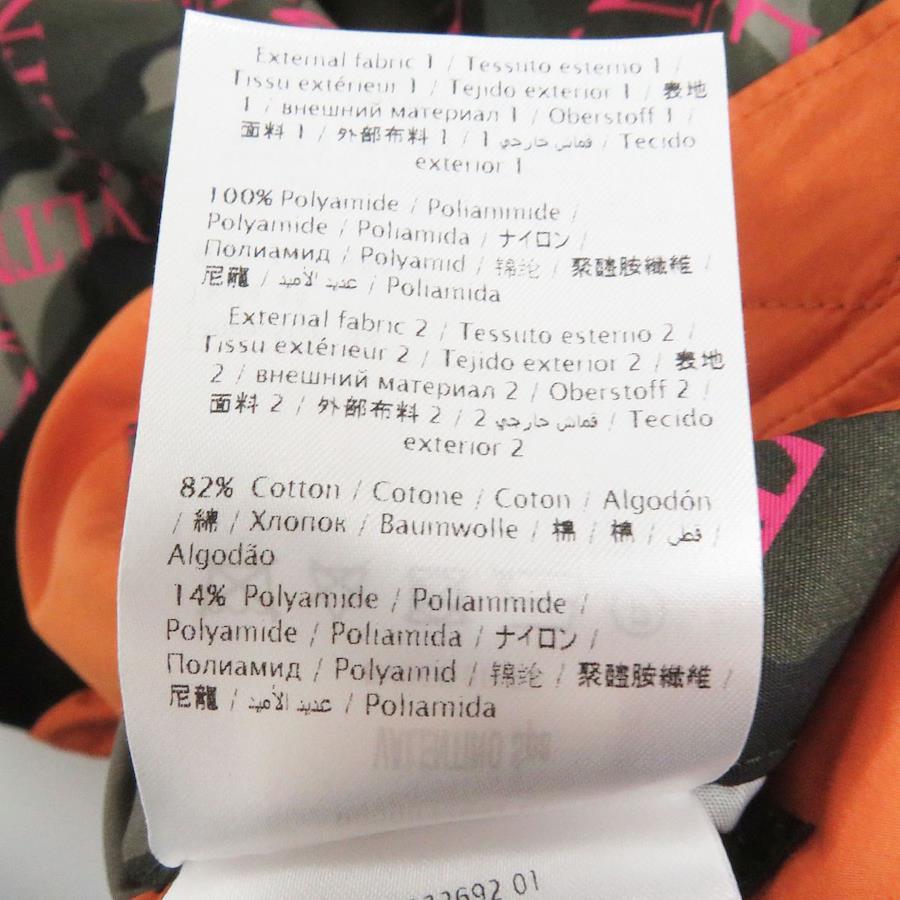 External fabric 1 / Tessuto esterno 1 /
Tissu extérieur 1 / Tejido exterior 1 / 表地
1 / внешний материал 1 / Oberstoff 1 /
面料 1 / 外部布料 1 / قماش خارجي 1 / Tecido
exterior 1
100% Polyamide / Poliammide /
Polyamide / Poliamida / ナイロン /
Полиамид / Polyamid / 锦纶 / 聚醯胺纖維 /
尼龍 / عديد الأميد / Poliamida
External fabric 2 / Tessuto esterno 2 /
Tissu extérieur 2 / Tejido exterior 2 / 表地
2 / внешний материал 2 / Oberstoff 2 /
面料 2 / 外部布料 2 / قماش خارجي 2 / Tecido
exterior 2
82% Cotton / Cotone / Coton / Algodón
/ 綿 / Хлопок / Baumwolle / 棉 / 棉 / قطن /
Algodão
14% Polyamide / Poliammide /
Polyamide / Poliamida / ナイロン /
Полиамид / Polyamid / 锦纶 / 聚醯胺纖維 /
尼龍 / عديد الأميد / Poliamida
VALENTINO spa
2692 01
VLTN